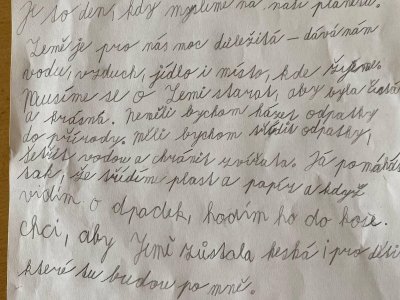 Je to den, kdy myslíme na naši planetu.
Země je pro nás moc důležitá – dává nám
vodu, vzduch, jídlo i místo, kde žijeme.
Musíme se o Zemi starat, aby byla čistá
a krásná. Neměli bychom házet odpadky
do přírody. Měli bychom třídit odpadky,
šetřit vodou a chránit zvířata. Já pomáhám
tak, že třídím plast a papír a když
vidím o dpadek, hodím ho do koše.
Chci, aby Země zůstala hezká i pro děti
které tu budou po mně.